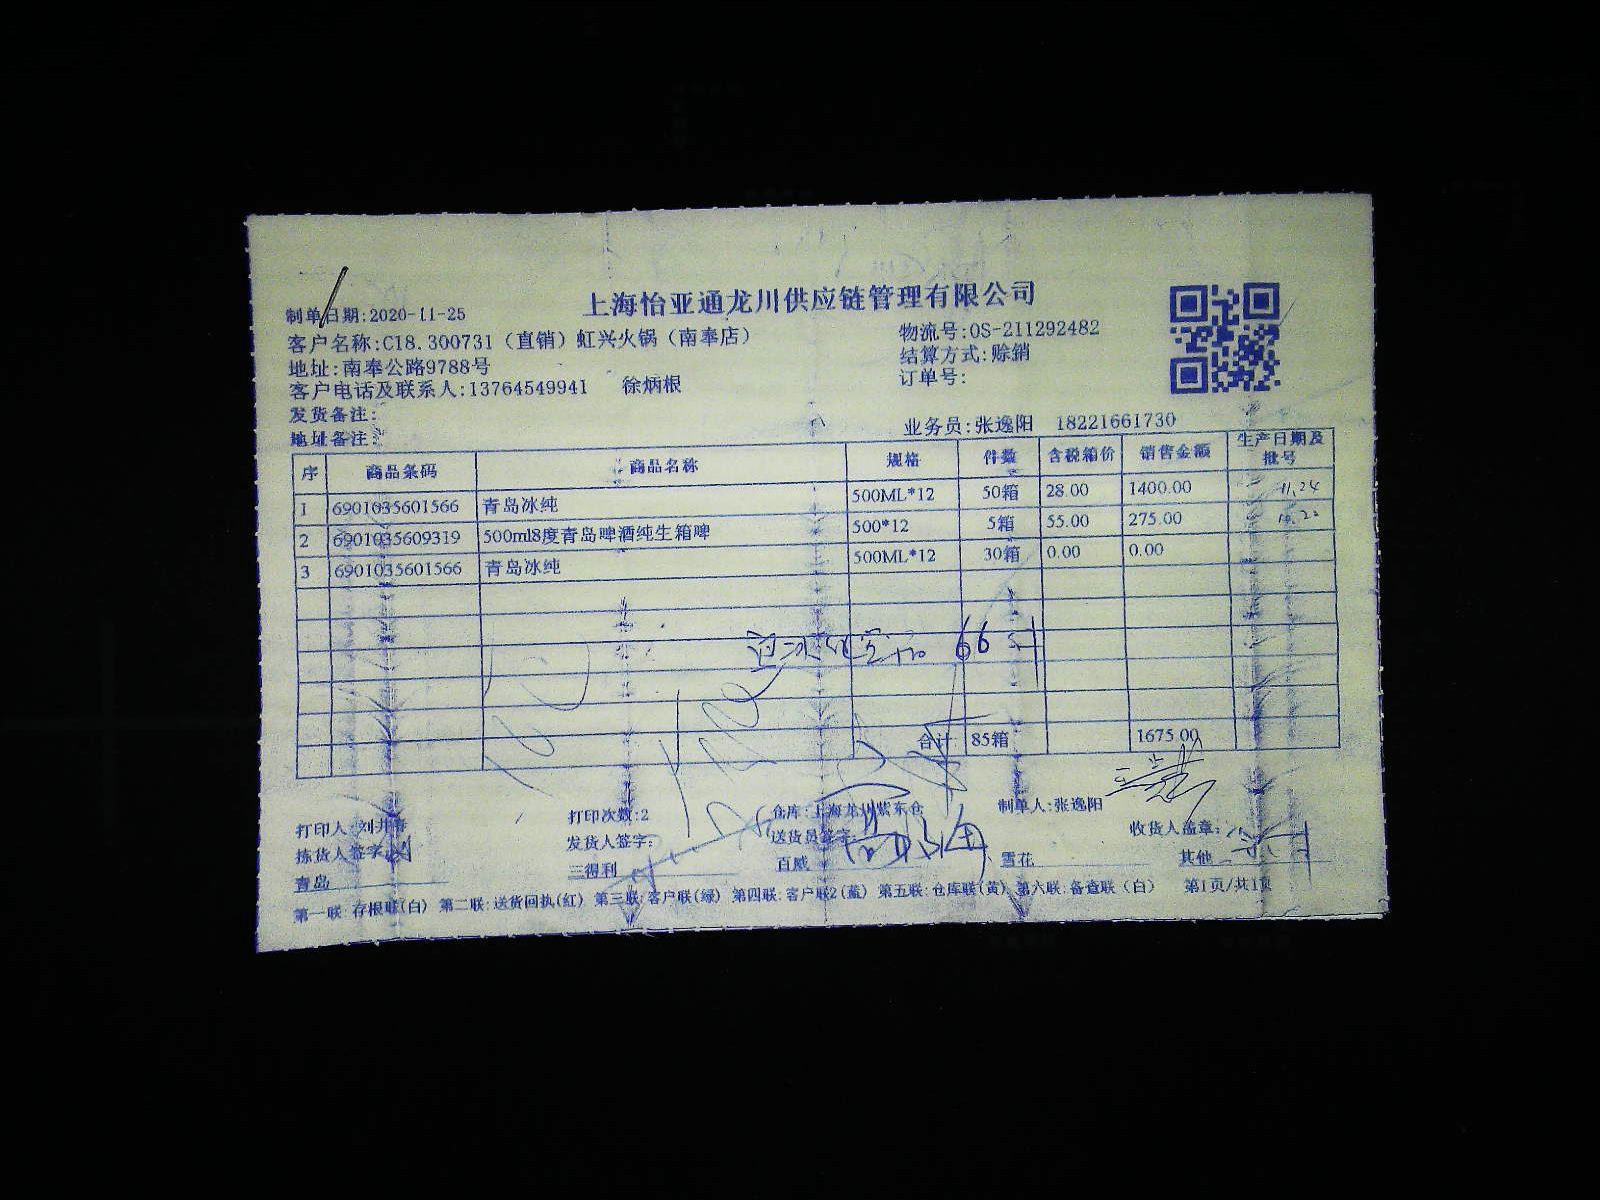 上海怡亚通龙川供应链管理有限公司
制单日期:2020-11-25
客户名称:C18.300731（直销）虹兴火锅（南奉店） 物流号:OS-211292482
地址:南奉公路9788号 结算方式:赊销
客户电话及联系人:13764549941 徐炳根 订单号:
发货备注:
地址备注: 业务员:张逸阳 18221661730
序 商品条码 商品名称 规格 件数 含税箱价 销售金额 生产日期及批号
1 6901035601566 青岛冰纯 500ML*12 50箱 28.00 1400.00 11.24
2 6901035609319 500ml8度青岛啤酒纯生箱啤 500*12 5箱 55.00 275.00
3 6901035601566 青岛冰纯 500ML*12 30箱 0.00 0.00
66
合计 85箱 1675.00
打印人: 打印次数:2 仓库:上海龙川紫东仓 制单人:张逸阳
拣货人签字: 发货人签字: 送货员签字: 收货人盖章:
青岛 三得利 百威 雪花 其他
第一联:存根联(白) 第二联:送货回执(红) 第三联:客户联(绿) 第四联:客户联2(蓝) 第五联:仓库联(黄) 第六联:备查联（白） 第1页/共1页